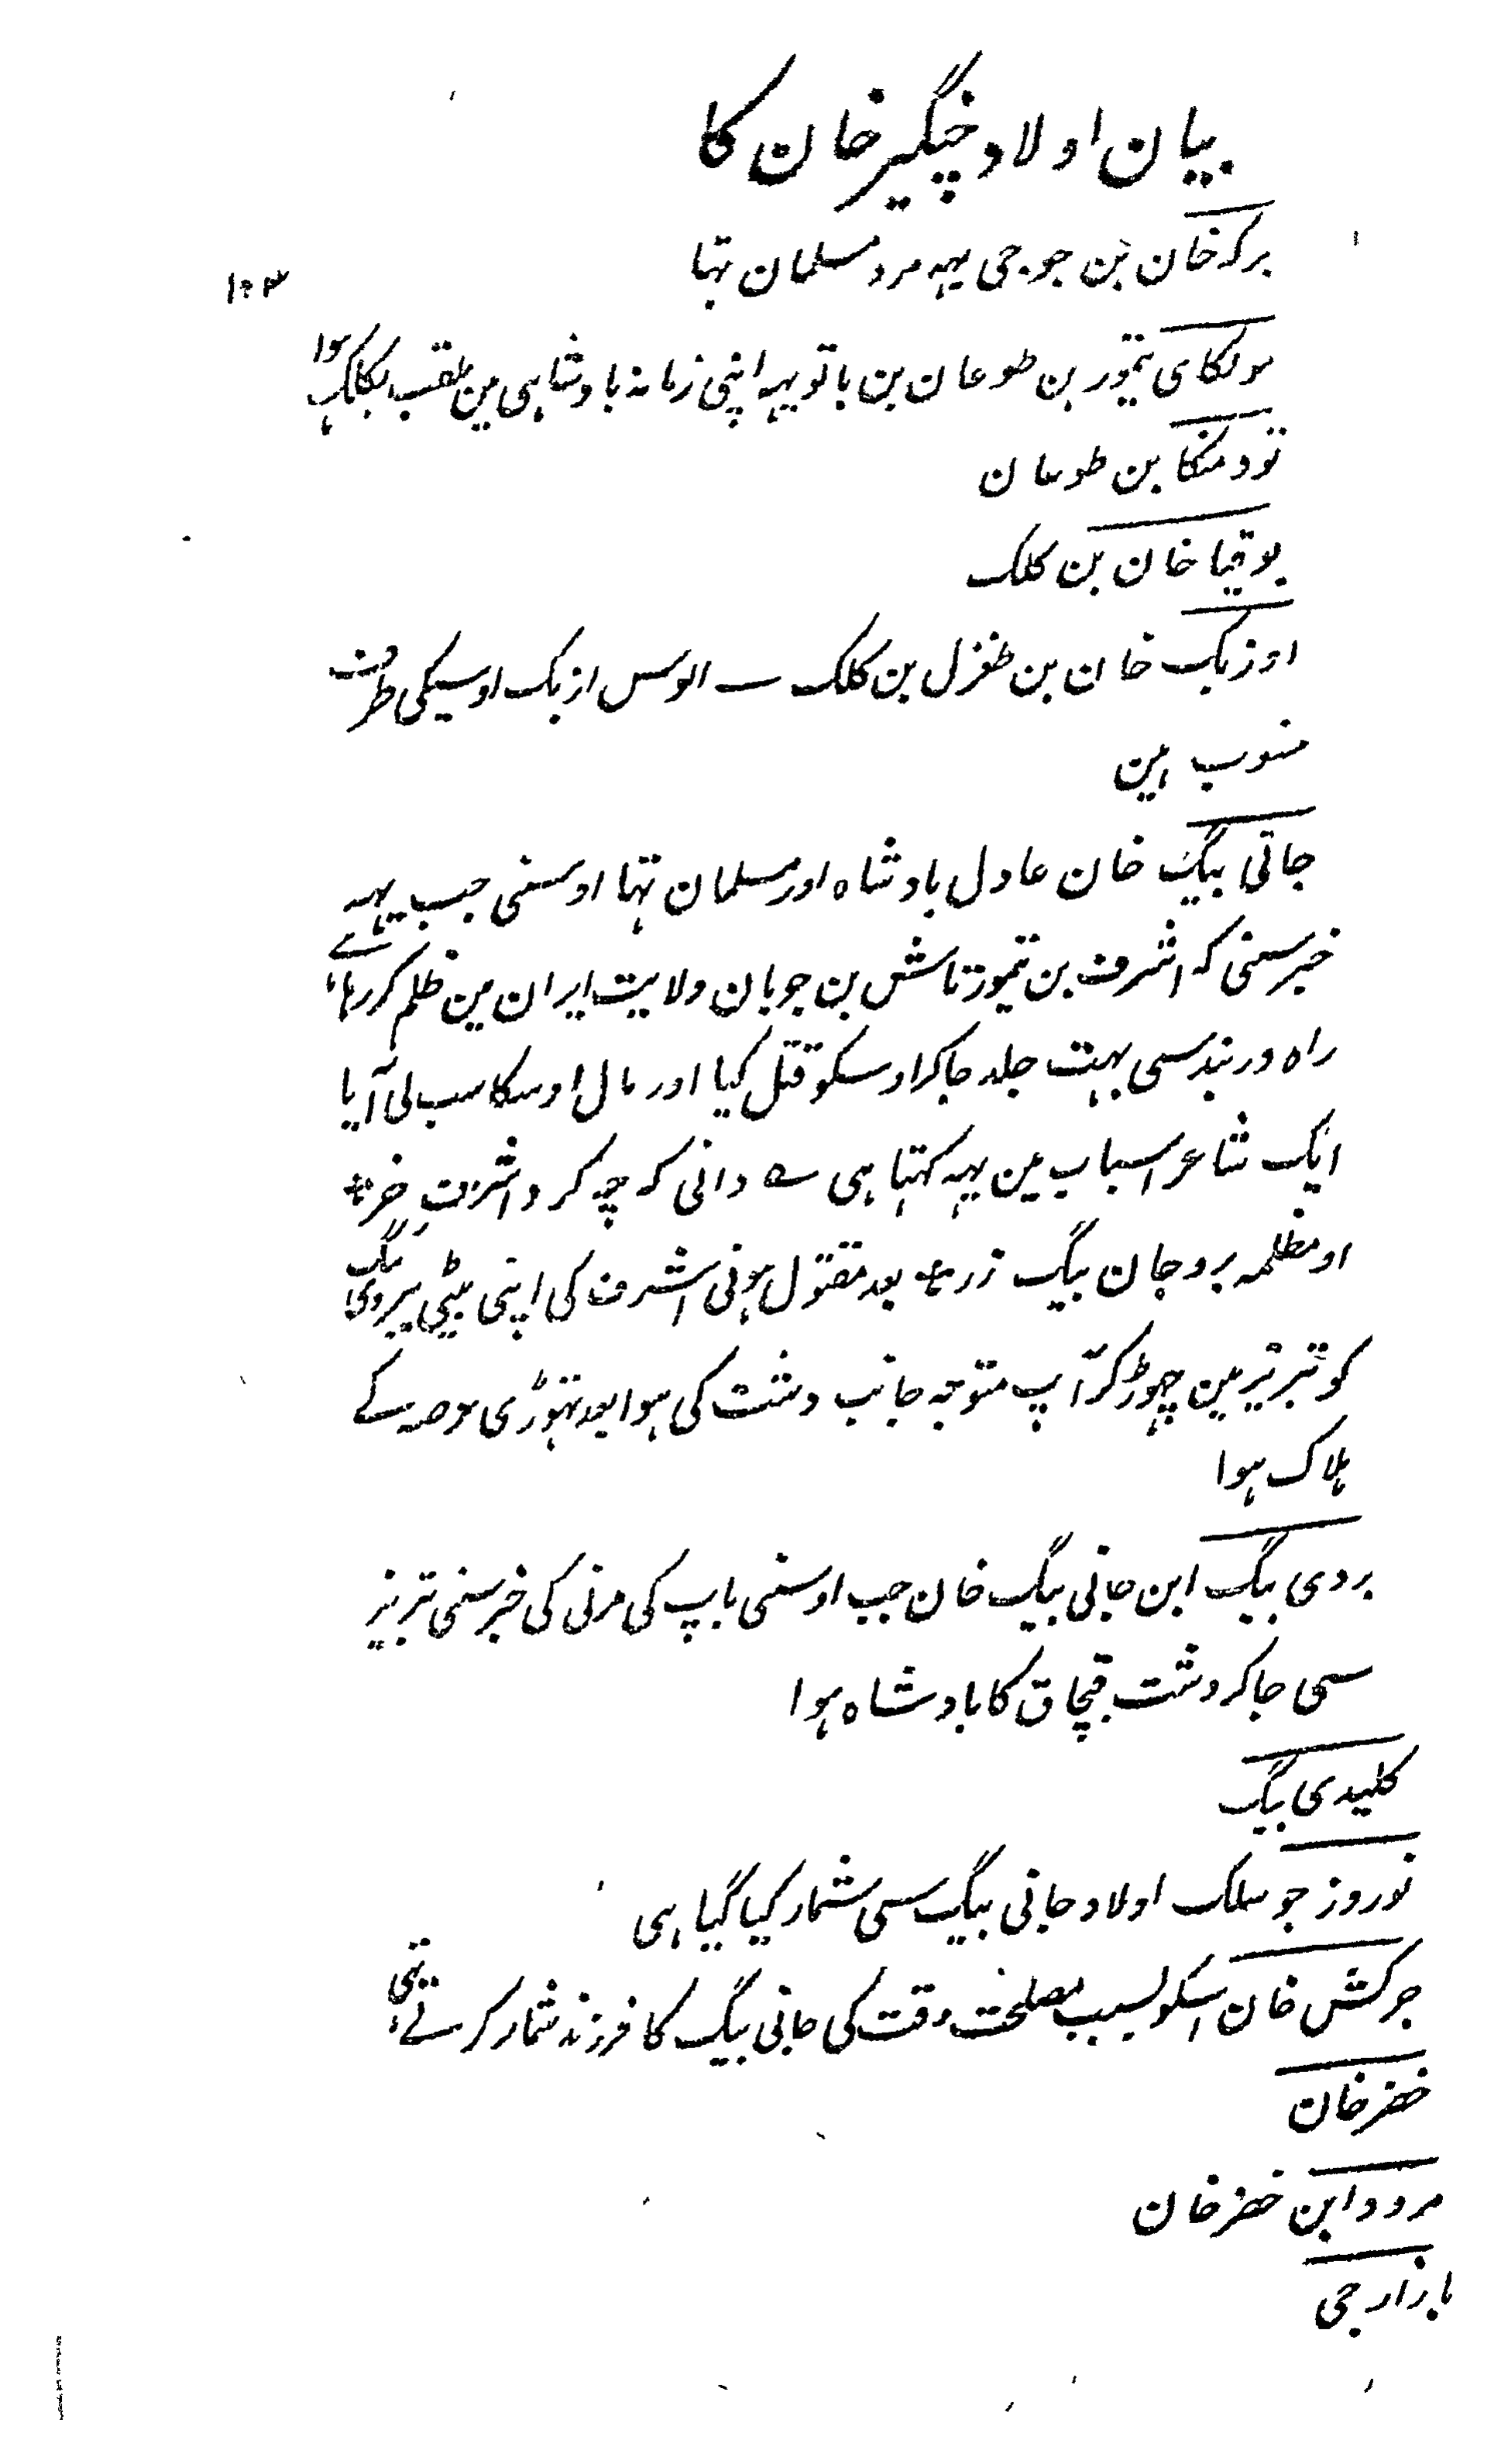 بیان اولاد چنگیز خان کا
برکہ خان بن جوجی یہہ مرد مسلمان تہا
۱۰۳
مولکای تیمور بن طوعان بن باتو یہہ اپنی زمانہ بادشاہی مین ملقب بکلک ہوا
تودمنکا بن طوعان
بوقیا خان بن کلک
اوزبک خان بن طغرل بن کلک ــ الوس ازبک اوسیکی طرف
منسوب ہین
جانی بیگ خان عادل بادشاہ اور مسلمان تہا اوسنی جب یہہ
خبر سنی کہ اشرف بن تیمورتاش بن چوبان ولایت ایران مین ظلم کر رہا ہے
راہ دربند سی بہت جلد جاکر اوسکو قتل کیا اور مال اوسکا سب لی آیا
ایک شاعر اسباب مین یہہ کہتا ہی ؎ دانی کہ چہ کرد اشرف خر ؞
او مظلمہ برد جان بیگ زر ؞ بعد مقتول ہونی اشرف کی اپنی بیٹی بیردی بیگ
کو تبریز مین چہوڑ کر آپ متوجہ جانب دشت کی ہوا بعد تہوڑی عرصہ کے
ہلاک ہوا
بردی بیگ ابن جانی بیگ خان جب اوسنی باپ کی مرنی کی خبر سنی تبریز
سی جاکر دشت قبچاق کا بادشاہ ہوا
کلیدی بیگ
نوروز جو سلک اولاد جانی بیگ سی شمار کیا گیا ہی
جرکش خان اسکو بسبب مصلحت وقت کی جانی بیگ کا فرزند شمار کرتے تہی
خضر خان
مردود ابن خضر خان
بازارچی